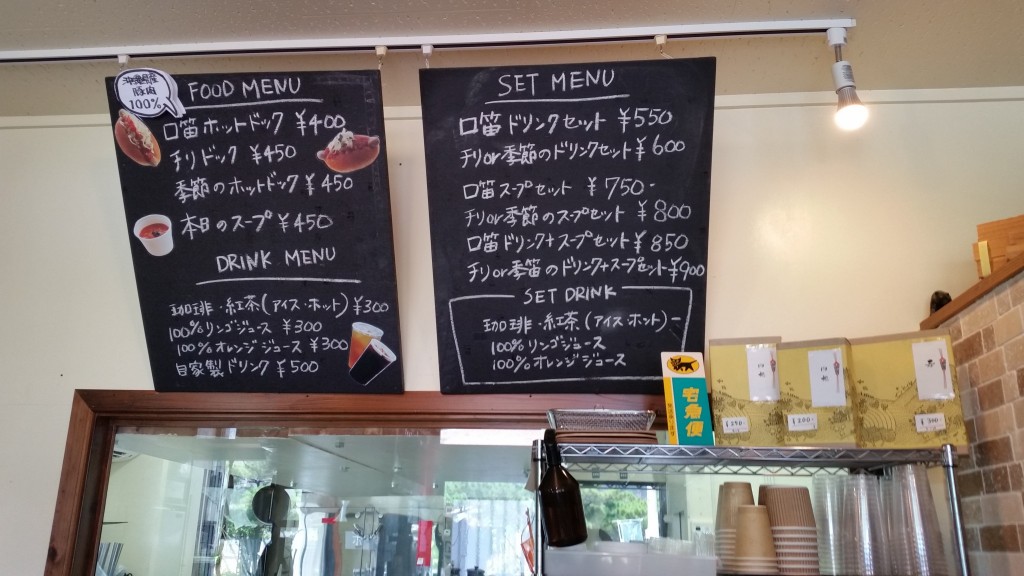 沖縄県産
豚肉
100%
FOOD MENU
口笛ホットドック ¥400
チリドック ¥450
季節のホットドック ¥450
本日のスープ ¥450
DRINK MENU
珈琲・紅茶(アイス・ホット) ¥300
100%リンゴジュース ¥300
100%オレンジジュース ¥300
自家製ドリンク ¥500
SET MENU
口笛ドリンクセット ¥550
チリor季節のドリンクセット ¥600
口笛スープセット ¥750-
チリor季節のスープセット ¥800
口笛ドリンク+スープセット ¥850
チリor季笛のドリンク+スープセット ¥900
SET DRINK
珈琲・紅茶(アイスホット)ー
100%リンゴジュース
100%オレンジジュース
宅急便